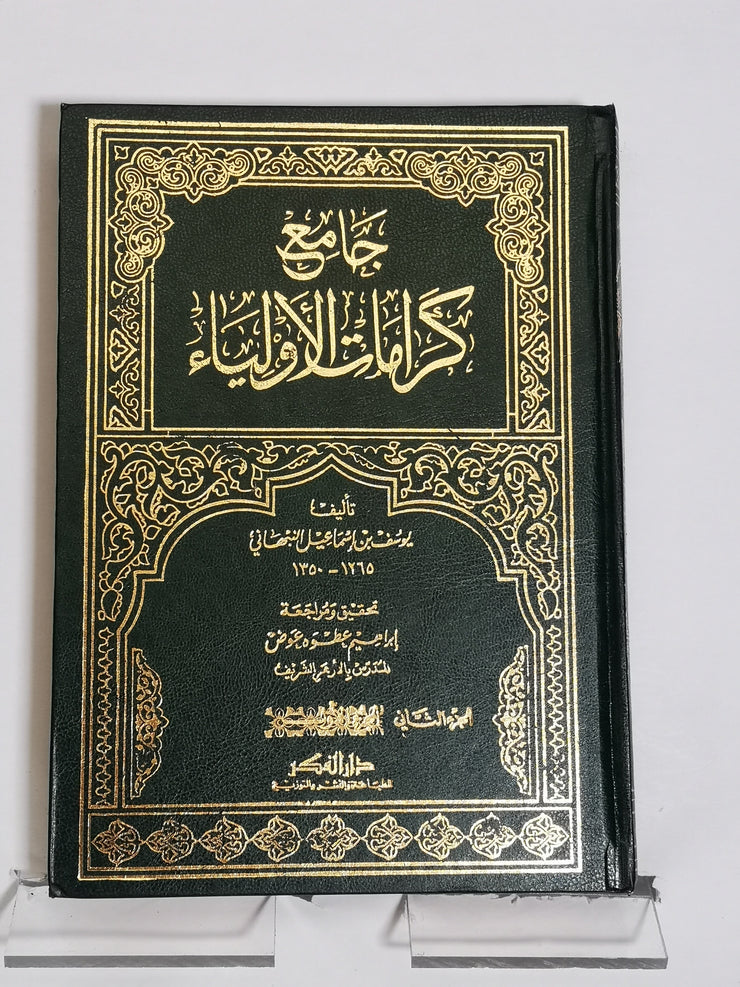 جامع
كرامات الأولياء
تأليف
يوسف بن إسماعيل النبهاني
١٢٦٥ - ١٣٥٠
تحقيق ومراجعة
إبراهيم عطوه عوض
المدرس بالأزهر الشريف
الجزء الثاني
دار الفكر
للطباعة والنشر والتوزيع